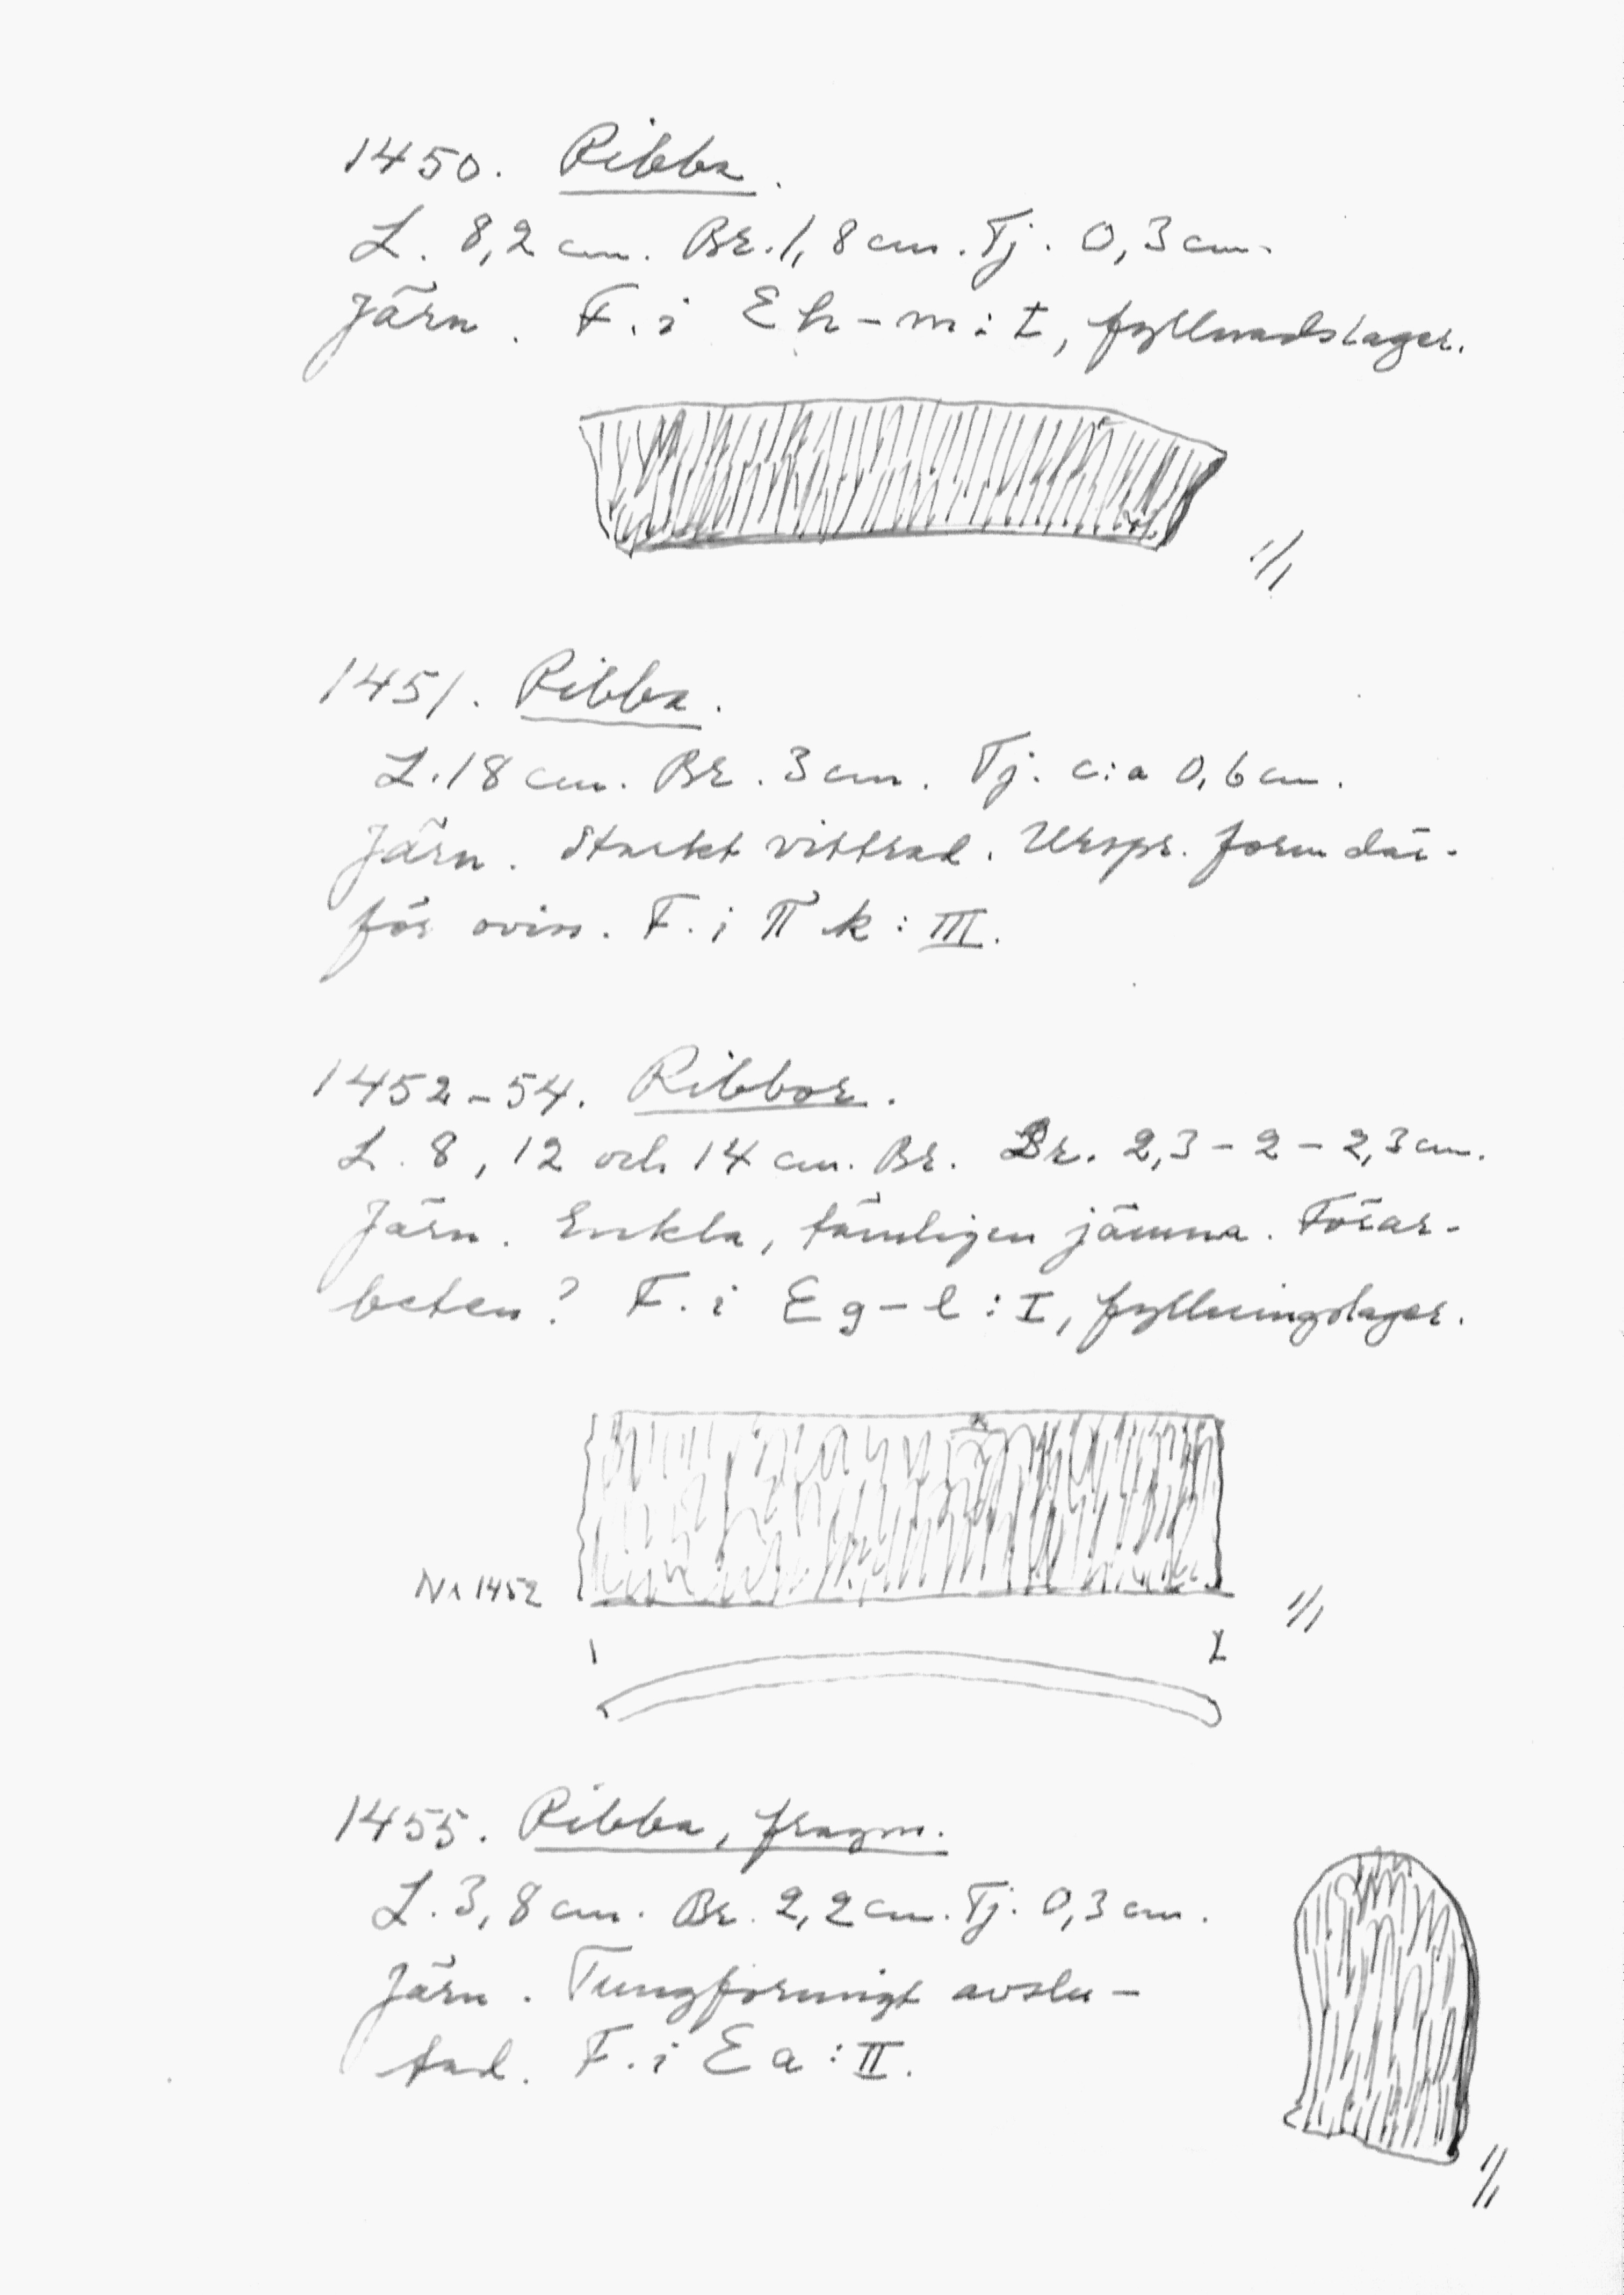 1450. Ribba.
L. 8,2 cm. Br. 1,8 cm. Tj. 0,3 cm.
Järn. F. i E h-m: I, fyllnadslager.
1/1
1451. Ribba.
L. 18 cm. Br. 3 cm. Tj. c:a 0,6 cm.
Järn. Starkt vittrad. Urspr. form där-
för oviss. F. i TT k: III.
1452-54. Ribbor.
L. 8, 12 och 14 cm. Br. Br. 2,3 - 2 - 2,3 cm.
Järn. Enkla, tämligen jämna. Förar-
beten? F. i E g-l: I, fyllningslager.
Nr 1452
1/1
1455. Ribba, fragm.
L. 3,8 cm. Br. 2,2 cm. Tj. 0,3 cm.
Järn. Tungformigt avslu-
tad. F. i E a: II.
1/1